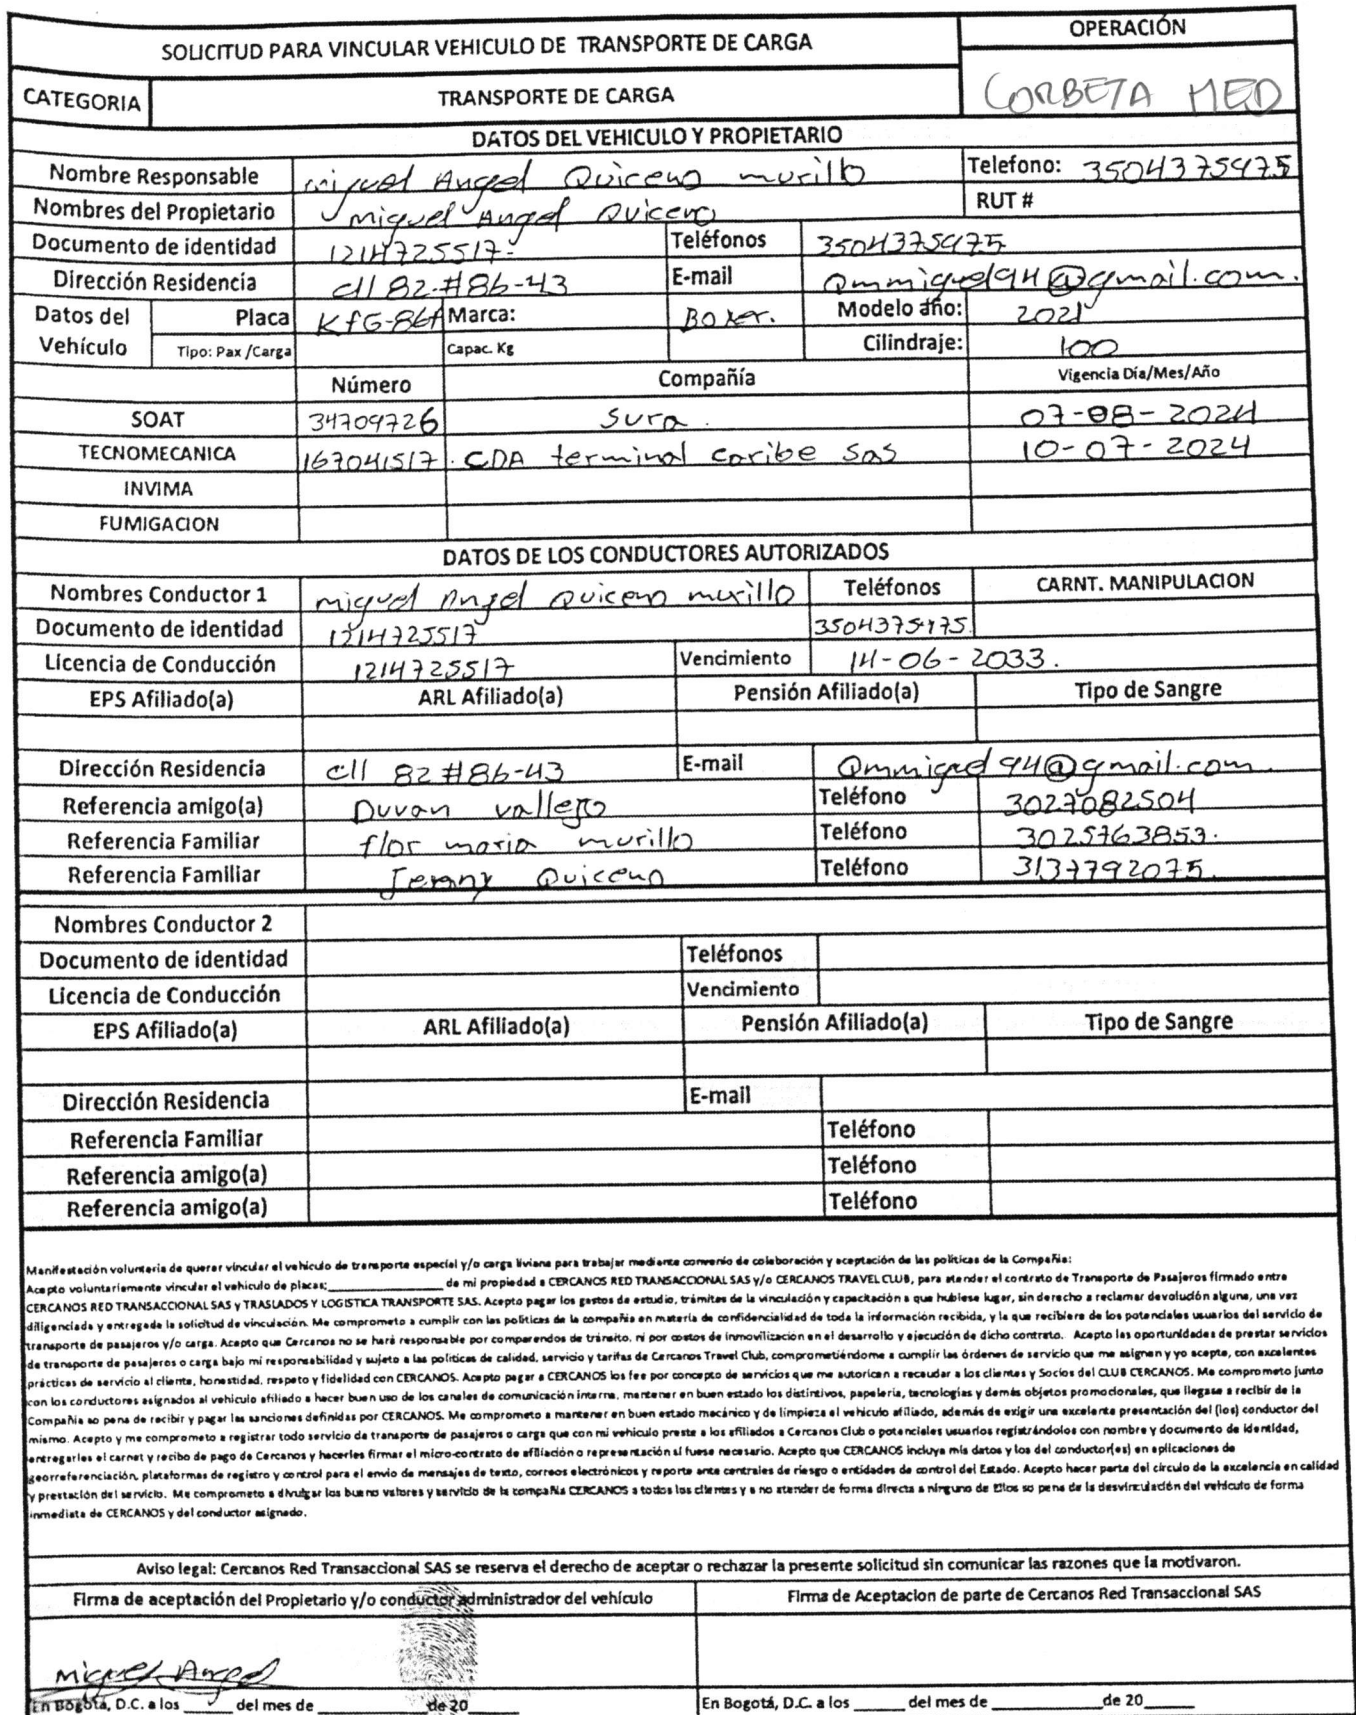 SOLICITUD PARA VINCULAR VEHICULO DE TRANSPORTE DE CARGA
OPERACIÓN
CORBETA MED
CATEGORIA TRANSPORTE DE CARGA
DATOS DEL VEHICULO Y PROPIETARIO
Nombre Responsable miguel Angel Quiceno murillo Telefono: 3504375475
Nombres del Propietario miguel Angel Quiceno RUT #
Documento de identidad 1214725517. Teléfonos 3504375475
Dirección Residencia cll 82 #86-43 E-mail Qmmiguel94@gmail.com.
Datos del Vehículo Placa Marca: Boxer. Modelo año: 2021
Tipo: Pax /Carga Capac. Kg Cilindraje: 100
Número Compañía Vigencia Día/Mes/Año
SOAT 34709726 Sura. 07-08-2024
TECNOMECANICA 167041517. CDA terminal caribe sas 10-07-2024
INVIMA
FUMIGACION
DATOS DE LOS CONDUCTORES AUTORIZADOS
Nombres Conductor 1 miguel Angel Quiceno murillo Teléfonos CARNT. MANIPULACION
Documento de identidad 1214725517 3504375475.
Licencia de Conducción 1214725517 Vencimiento 14-06-2033.
EPS Afiliado(a) ARL Afiliado(a) Pensión Afiliado(a) Tipo de Sangre
Dirección Residencia cll 82 #86-43 E-mail Qmmiguel94@gmail.com.
Referencia amigo(a) Duvan vallejo Teléfono 3027082504
Referencia Familiar flor maria murillo Teléfono 3025763853.
Referencia Familiar Jenny Quiceno Teléfono 3137792075.
Nombres Conductor 2
Documento de identidad Teléfonos
Licencia de Conducción Vencimiento
EPS Afiliado(a) ARL Afiliado(a) Pensión Afiliado(a) Tipo de Sangre
Dirección Residencia E-mail
Referencia Familiar Teléfono
Referencia amigo(a) Teléfono
Referencia amigo(a) Teléfono
Manifestación voluntaria de querer vincular el vehiculo de transporte especial y/o carga liviana para trabajar mediante convenio de colaboración y aceptación de las politicas de la Compañia:
Acepto voluntariamente vincular el vehiculo de placas:____________ de mi propiedad a CERCANOS RED TRANSACCIONAL SAS y/o CERCANOS TRAVEL CLUB, para atender el contrato de Transporte de Pasajeros firmado entre
CERCANOS RED TRANSACCIONAL SAS y TRASLADOS Y LOGISTICA TRANSPORTE SAS. Acepto pagar los gastos de estudio, trámites de la vinculación y capacitación a que hubiese lugar, sin derecho a reclamar devolución alguna, una vez
diligenciada y entregada la solicitud de vinculación. Me comprometo a cumplir con las politicas de la compañia en materia de confidencialidad de toda la información recibida, y la que recibiera de los potenciales usuarios del servicio de
transporte de pasajeros y/o carga. Acepto que Cercanos no se hará responsable por comparendos de tránsito, ni por costos de inmovilización en el desarrollo y ejecución de dicho contrato. Acepto las oportunidades de prestar servicios
de transporte de pasajeros o carga bajo mi responsabilidad y sujeto a las politicas de calidad, servicio y tarifas de Cercanos Travel Club, comprometiéndome a cumplir las órdenes de servicio que me asignen y yo acepte, con excelentes
prácticas de servicio al cliente, honestidad, respeto y fidelidad con CERCANOS. Acepto pagar a CERCANOS los fee por concepto de servicios que me autoricen a recaudar a los clientes y Socios del CLUB CERCANOS. Me comprometo junto
con los conductores asignados al vehiculo afiliado a hacer buen uso de los canales de comunicación interna, mantener en buen estado los distintivos, papeleria, tecnologias y demás objetos promocionales, que llegase a recibir de la
Compañia so pena de recibir y pagar las sanciones definidas por CERCANOS. Me comprometo a mantener en buen estado mecánico y de limpieza el vehiculo afiliado, además de exigir una excelente presentación del (los) conductor del
mismo. Acepto y me comprometo a registrar todo servicio de transporte de pasajeros o carga que con mi vehiculo preste a los afiliados a Cercanos Club o potenciales usuarios registrándolos con nombre y documento de identidad,
entregarles el carnet y recibo de pago de Cercanos y hacerles firmar el micro-contrato de afiliación o representación si fuese necesario. Acepto que CERCANOS incluya mis datos y los del conductor(es) en aplicaciones de
georreferenciación, plataformas de registro y control para el envio de mensajes de texto, correos electrónicos y reporte ante centrales de riesgo o entidades de control del Estado. Acepto hacer parte del circulo de la excelencia en calidad
y prestación del servicio. Me comprometo a divulgar los bueno valores y servicio de la compañia CERCANOS a todos los clientes y a no atender de forma directa a ninguno de Ellos so pena de la desvinculación del vehiculo de forma
inmediata de CERCANOS y del conductor asignado.
Aviso legal: Cercanos Red Transaccional SAS se reserva el derecho de aceptar o rechazar la presente solicitud sin comunicar las razones que la motivaron.
Firma de aceptación del Propietario y/o conductor administrador del vehículo Firma de Aceptacion de parte de Cercanos Red Transaccional SAS
Miguel Angel
En Bogotá, D.C. a los _____ del mes de __________ de 20_____ En Bogotá, D.C. a los _____ del mes de __________ de 20_____